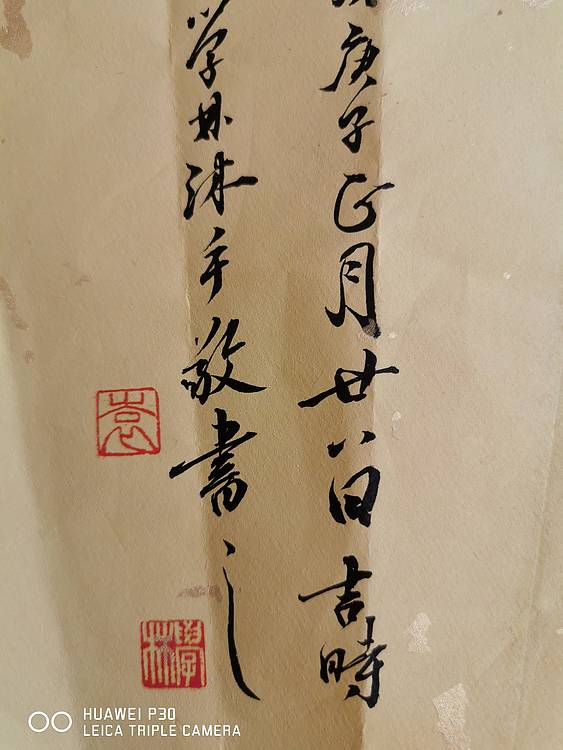 庚子正月廿八日吉時
学林沐手敬書之
袁
學林
HUAWEI P30
LEICA TRIPLE CAMERA